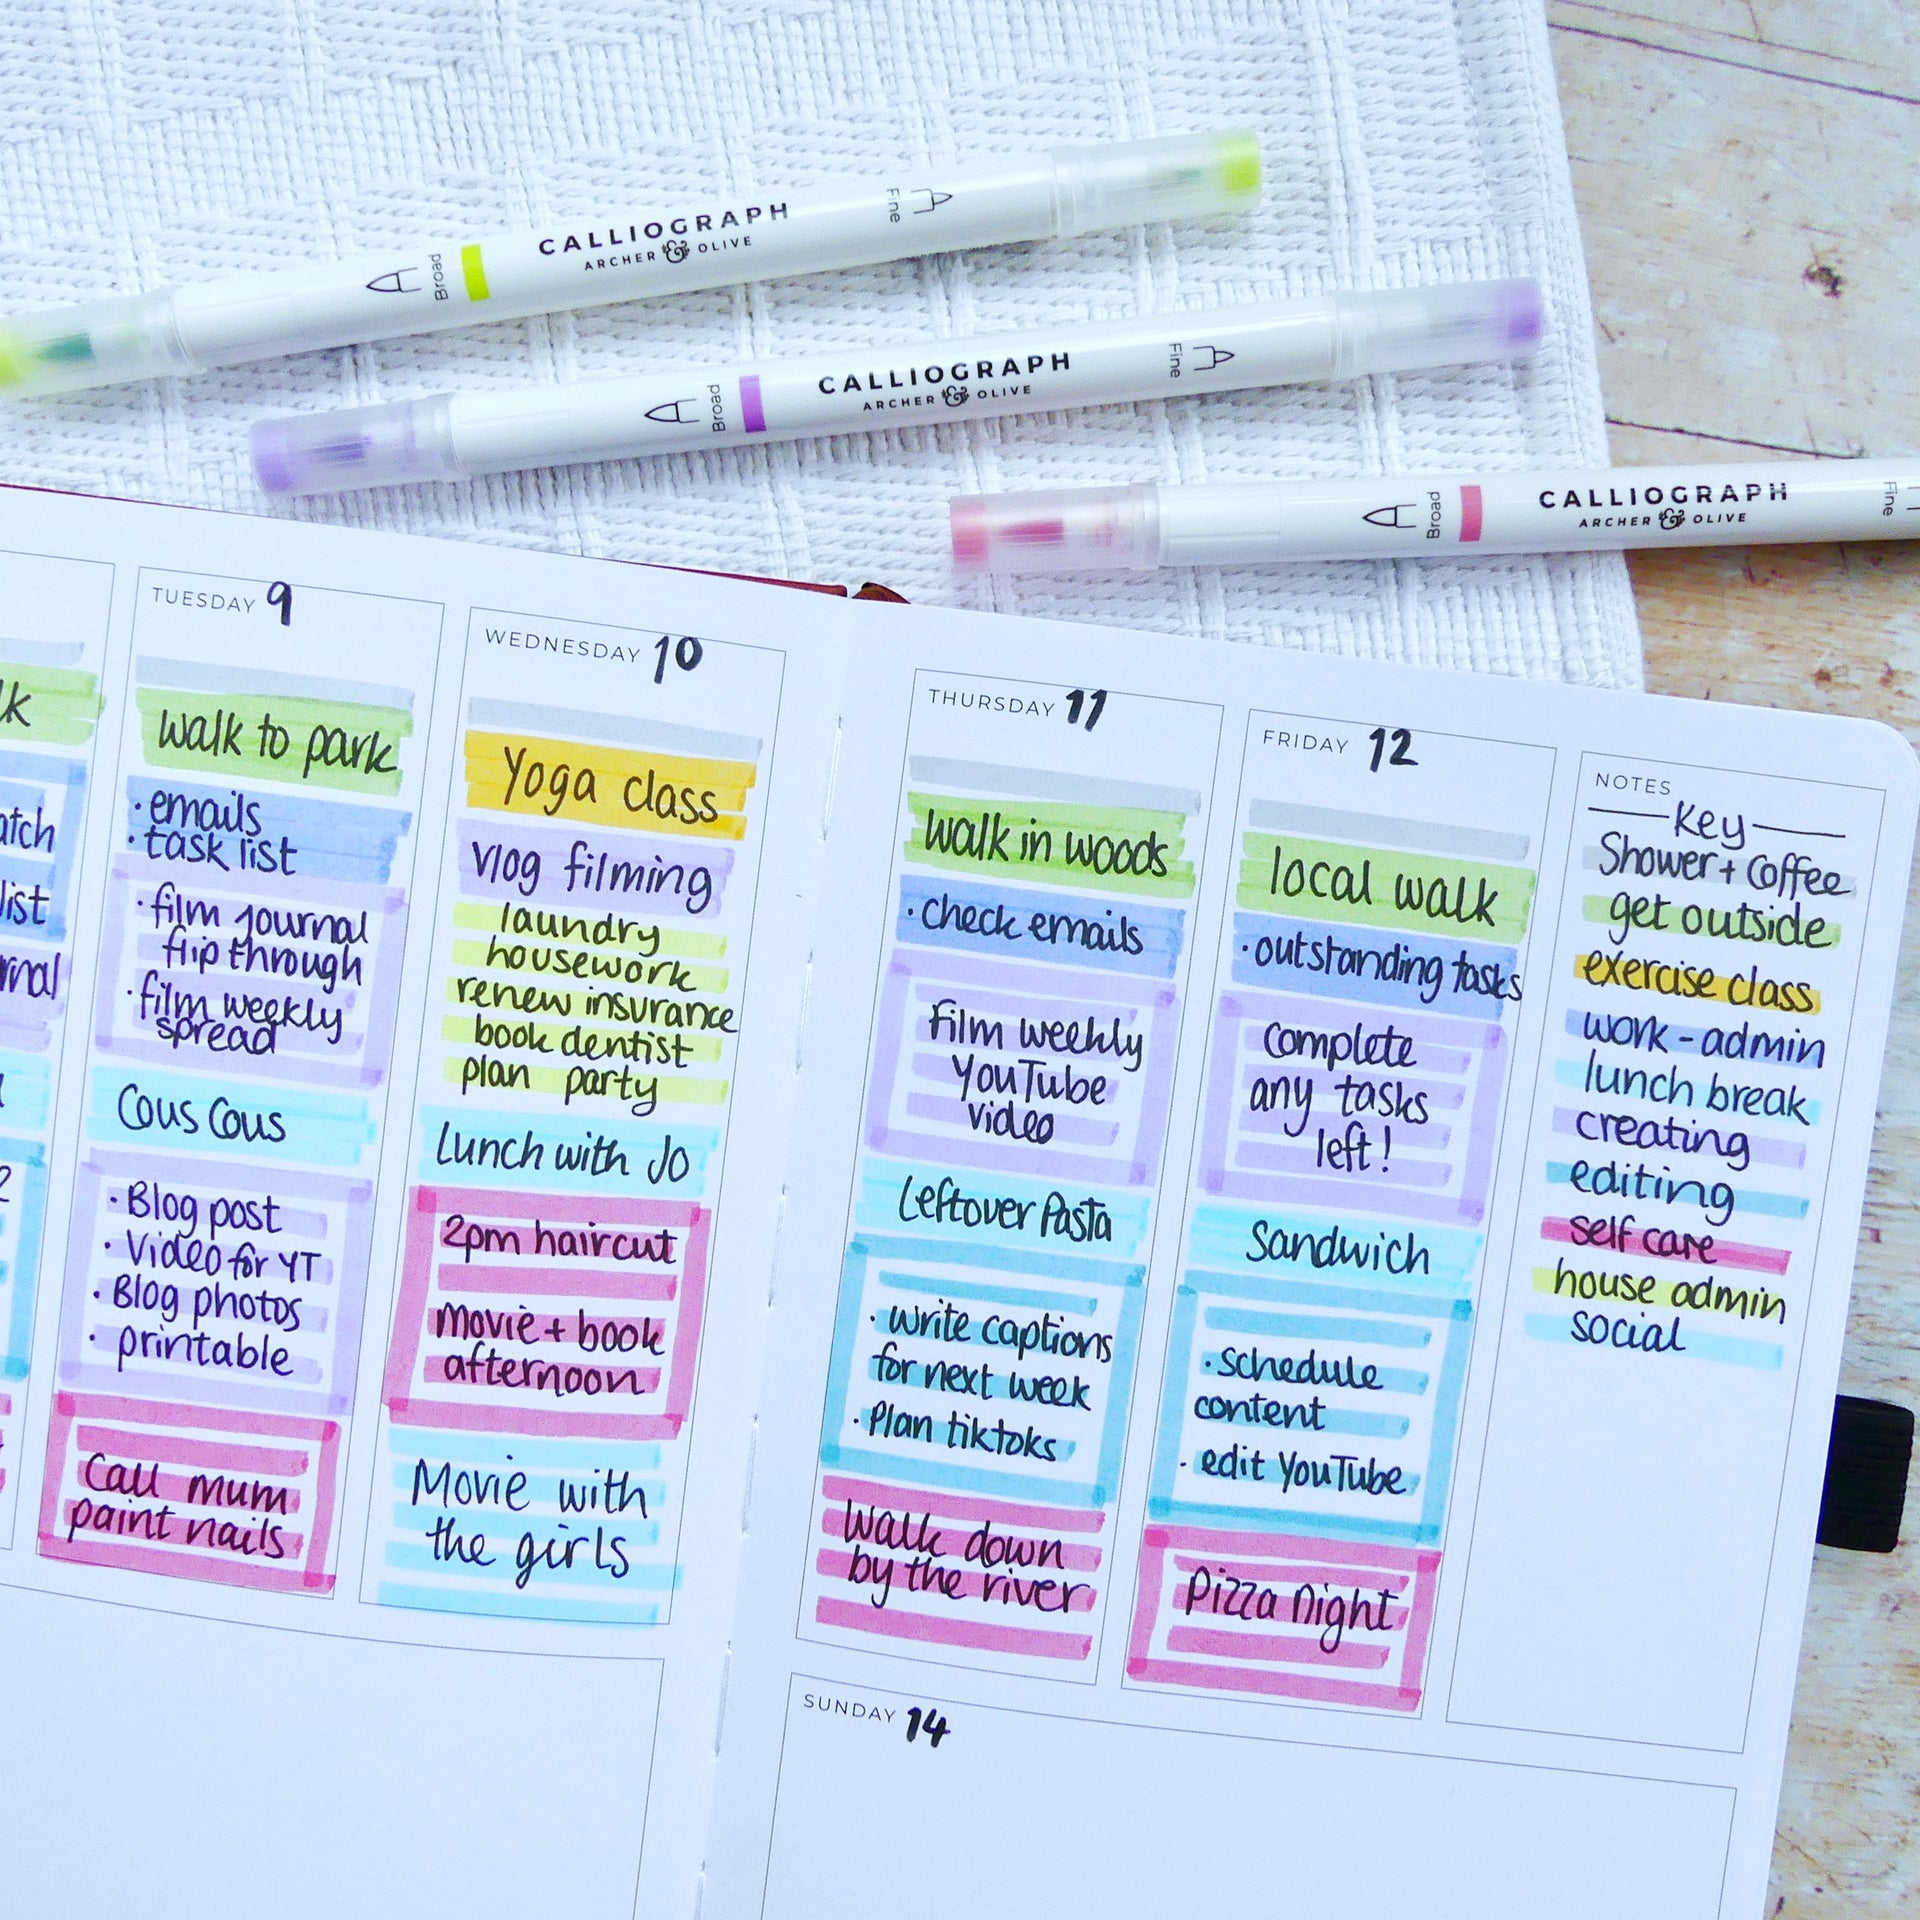 CALLIOGRAPH
ARCHER & OLIVE
Broad
Fine
CALLIOGRAPH
ARCHER & OLIVE
Broad
Fine
CALLIOGRAPH
ARCHER & OLIVE
Broad
Fine
lk
atch
list
rnal
2
TUESDAY 9
walk to park
· emails
· task list
· film journal
flip through
· film weekly
spread
Cous Cous
· Blog post
· Video for YT
· Blog photos
· printable
Call mum
paint nails
WEDNESDAY 10
Yoga class
Vlog filming
laundry
housework
renew insurance
book dentist
plan party
Lunch with Jo
2pm haircut
movie + book
afternoon
Movie with
the girls
THURSDAY 11
walk in woods
· check emails
film weekly
YouTube
video
Leftover Pasta
· write captions
for next week
· Plan tiktoks
Walk down
by the river
FRIDAY 12
local walk
· outstanding tasks
complete
any tasks
left!
Sandwich
· schedule
content
· edit YouTube
Pizza night
NOTES
Key
Shower + Coffee
get outside
exercise class
work - admin
lunch break
creating
editing
self care
house admin
social
SUNDAY 14